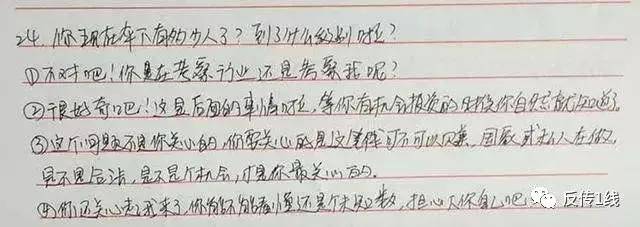 24. 你现在伞下有多少人了？到了什么级别哇？
①不对吧！你是在考察行业还是考察我呢？
②很好奇吧！这是后面的事情哇，等你有机会接触的时候你自然就知道了。
③这个问题不是你关心的，你要关心的是这笔钱可不可以回来，国家或私人在做，
是不是合法，是不是个机会，才是你最关心的。
④你还关心起我来了，你能不能看懂还是个未知数，担心下你自己吧
反传1线